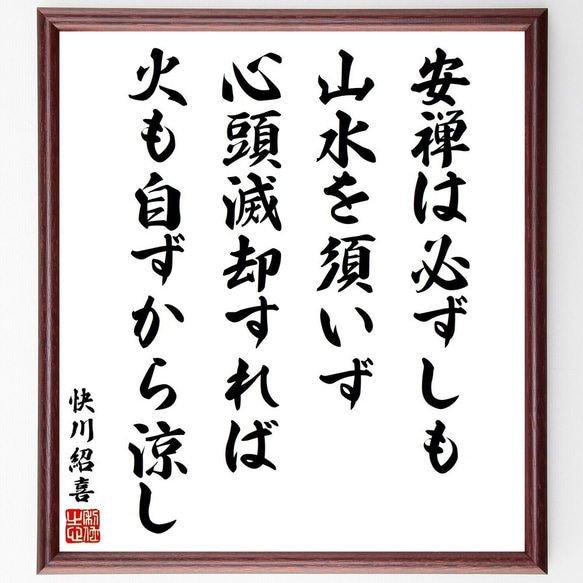 安禅は必ずしも
山水を須いず
心頭滅却すれば
火も自ずから涼し
快川紹喜